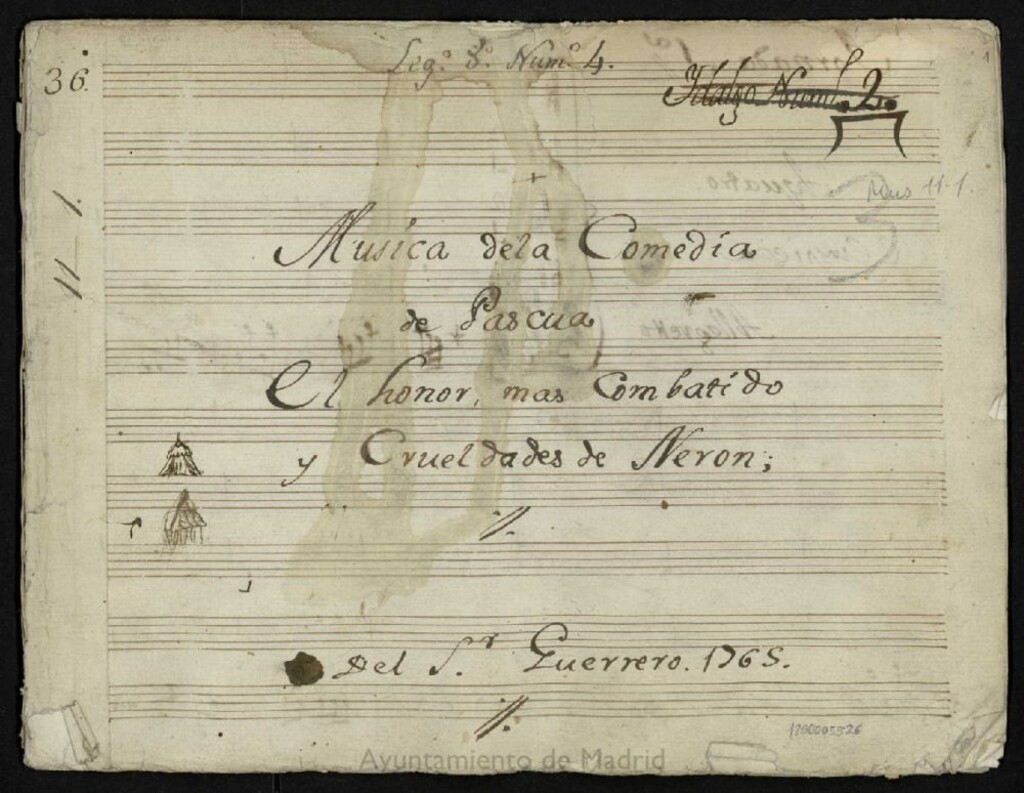 36.
Leg.º 3.º Num.º 4.
Hidalgo Num.º 2.
Mus 11-1.
11 1.
Musica dela Comedia
de Pascua
El honor, mas Combatido
y Crueldades de Neron;
Del S.r Guerrero. 1765.
1200005326
Ayuntamiento de Madrid